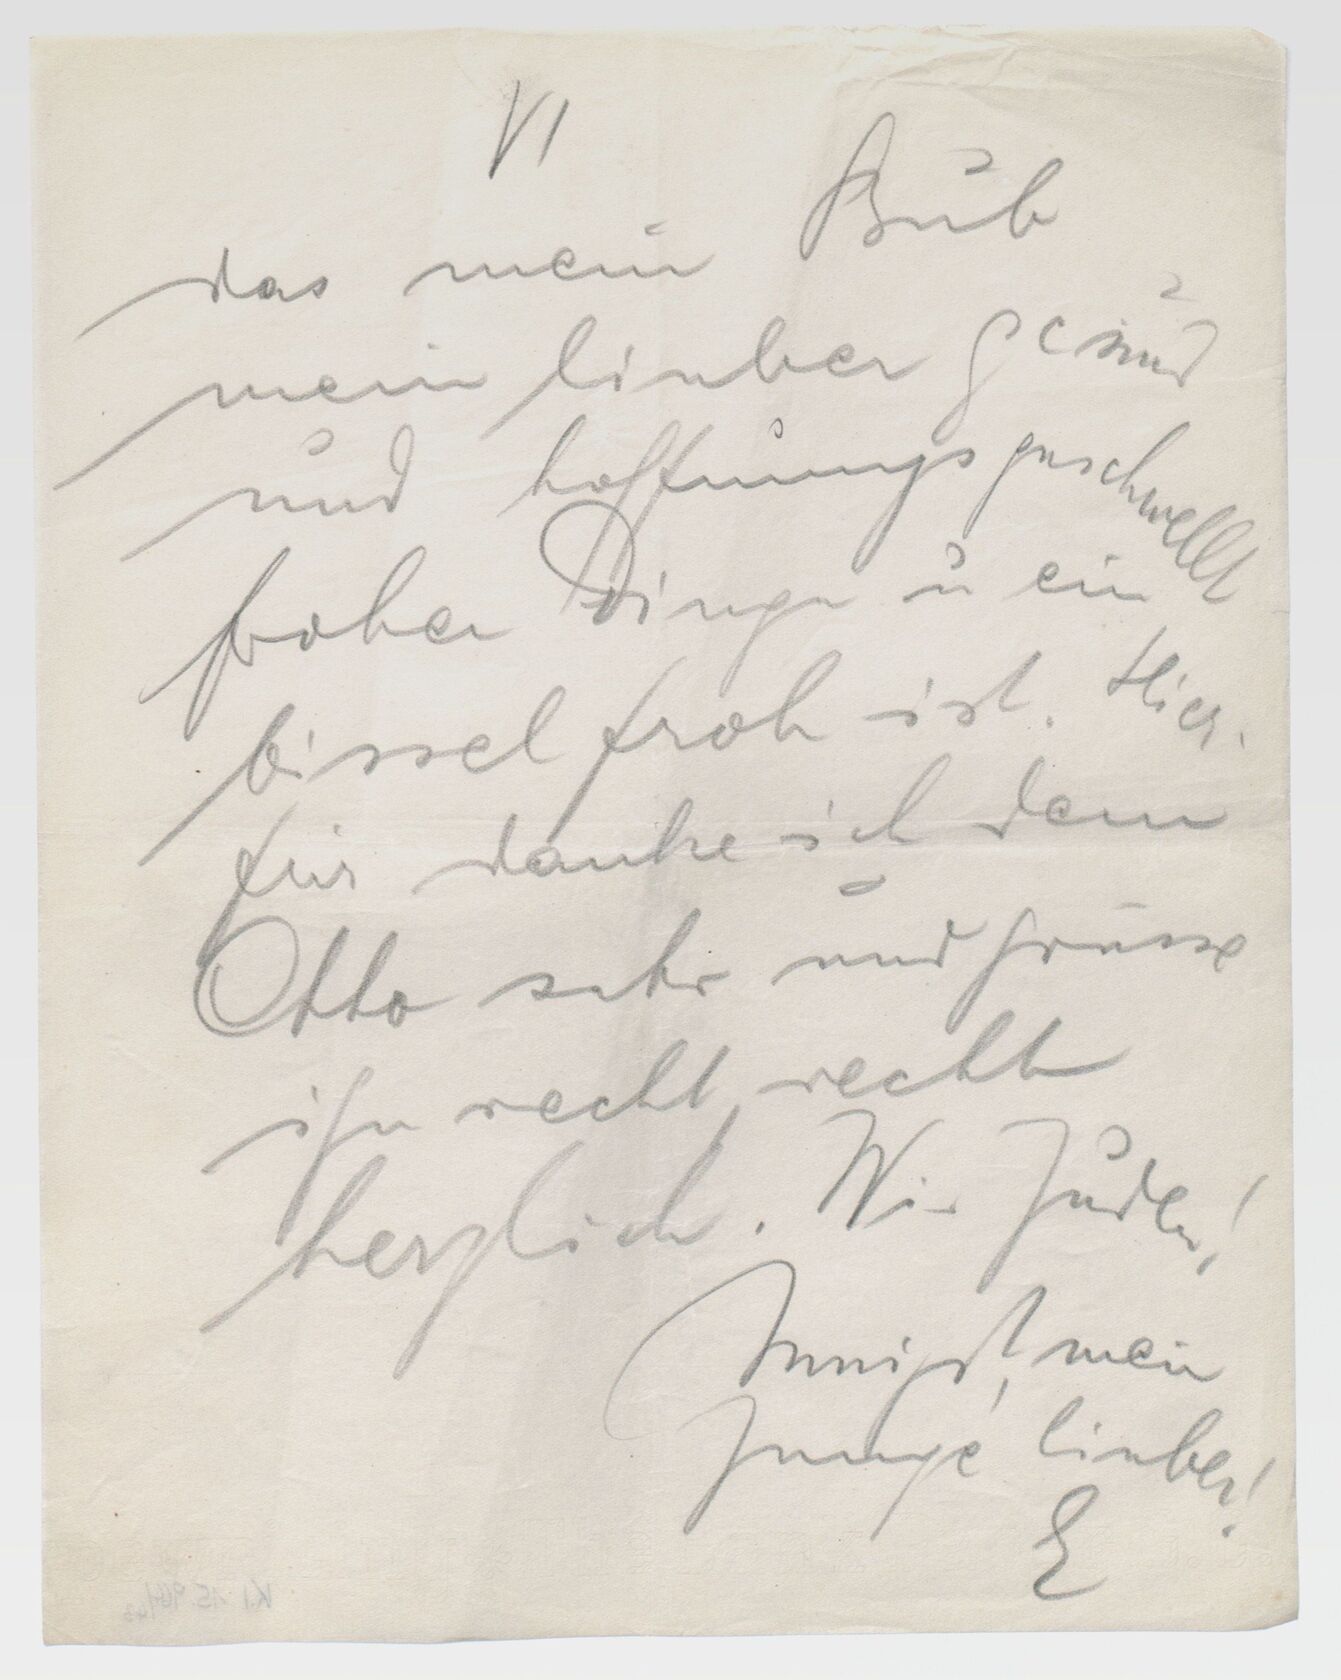 VI
das mein Bub
mein lieber gesund
und hoffnungsgeschwellt
froher Dinge u ein
bissel froh ist. Hier-
für danke ich dem
Otto sehr und grüsse
ihn recht, recht
herzlich. Wir Juden!
Innigst, mein
Junge lieber!
E